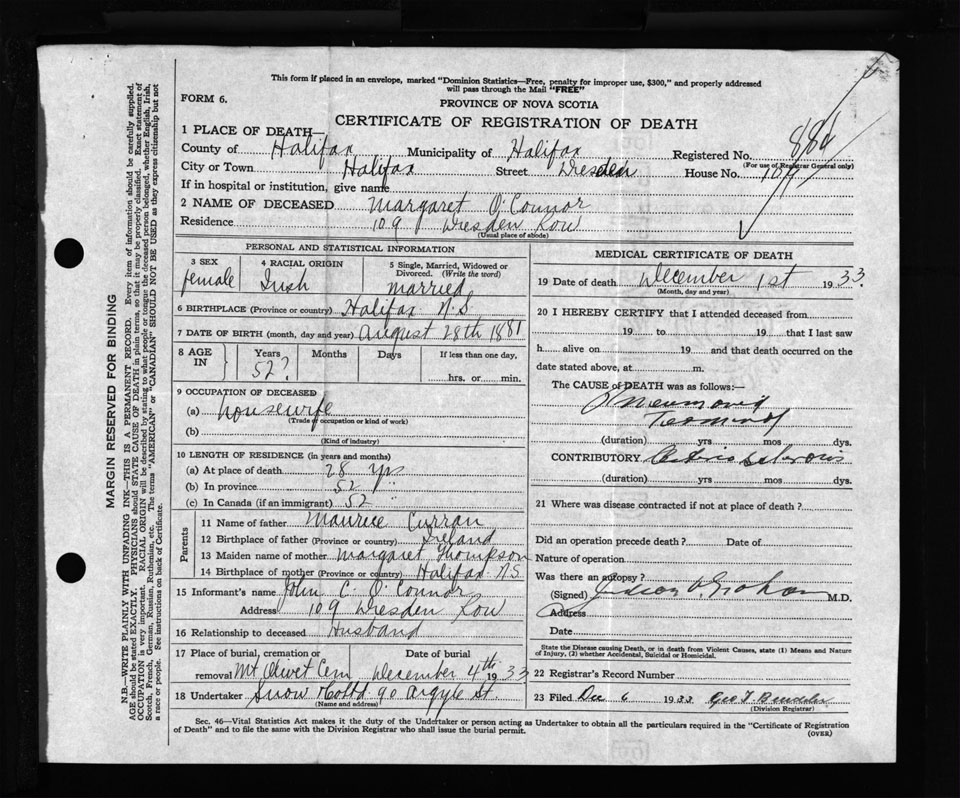 This form if placed in an envelope, marked "Dominion Statistics—Free, penalty for improper use, $300," and properly addressed
will pass through the Mail "FREE"
FORM 6.
PROVINCE OF NOVA SCOTIA
CERTIFICATE OF REGISTRATION OF DEATH
1 PLACE OF DEATH—
County of Halifax Municipality of Halifax Registered No. 886
(For use of Registrar General only)
City or Town Halifax Street Dresden House No. 109
If in hospital or institution, give name
2 NAME OF DECEASED Margaret O'Connor
Residence 109 Dresden Row
(Usual place of abode)
PERSONAL AND STATISTICAL INFORMATION
3 SEX 4 RACIAL ORIGIN 5 Single, Married, Widowed or
Divorced. (Write the word)
female Irish married
6 BIRTHPLACE (Province or country) Halifax N.S
7 DATE OF BIRTH (month, day and year) August 28th 1881
8 AGE IN Years Months Days If less than one day,
52? hrs. or min.
9 OCCUPATION OF DECEASED
(a) housewife
(Trade, occupation or kind of work)
(b)
(Kind of industry)
10 LENGTH OF RESIDENCE (in years and months)
(a) At place of death 28 yrs
(b) In province 52 "
(c) In Canada (if an immigrant) 52 "
Parents
11 Name of father Maurice Curran
12 Birthplace of father (Province or country) Ireland
13 Maiden name of mother Margaret Thompson
14 Birthplace of mother (Province or country) Halifax N.S
15 Informant's name John C. O'Connor
Address 109 Dresden Row
16 Relationship to deceased Husband
17 Place of burial, cremation or Date of burial
removal Mt Olivet Cem December 4th 1933
18 Undertaker Snow & Co Ltd 90 Argyle St
(Name and address)
MEDICAL CERTIFICATE OF DEATH
19 Date of death December 1st 1933
(Month, day and year)
20 I HEREBY CERTIFY that I attended deceased from
19 to 19 that I last saw
h alive on 19 and that death occurred on the
date stated above, at m.
The CAUSE of DEATH was as follows:—
Pneumonia
Terminal
(duration) yrs mos dys.
CONTRIBUTORY
(duration) yrs mos dys.
21 Where was disease contracted if not at place of death?
Did an operation precede death? Date of
Nature of operation
Was there an autopsy?
(Signed) M.D.
Address
Date
State the Disease causing Death, or in death from Violent Causes, state (1) Means and Nature
of Injury, (2) whether Accidental, Suicidal or Homicidal.
22 Registrar's Record Number
23 Filed Dec 6 1933
(Division Registrar)
Sec. 46—Vital Statistics Act makes it the duty of the Undertaker or person acting as Undertaker to obtain all the particulars required in the "Certificate of Registration
of Death" and to file the same with the Division Registrar who shall issue the burial permit.
(OVER)
MARGIN RESERVED FOR BINDING
N.B.—WRITE PLAINLY WITH UNFADING INK—THIS IS A PERMANENT RECORD. Every item of information should be carefully supplied.
AGE should be stated EXACTLY. PHYSICIANS should STATE CAUSE OF DEATH in plain terms, so that it may be properly classified. Exact statement of
OCCUPATION is very important. RACIAL ORIGIN will be described by stating to what people or tongue the deceased person belonged, whether English, Irish,
Scotch, French, German, Russian, Ruthenian, etc. The terms "AMERICAN" or "CANADIAN" SHOULD NOT BE USED as they express citizenship but not
a race or people. See instructions on back of Certificate.